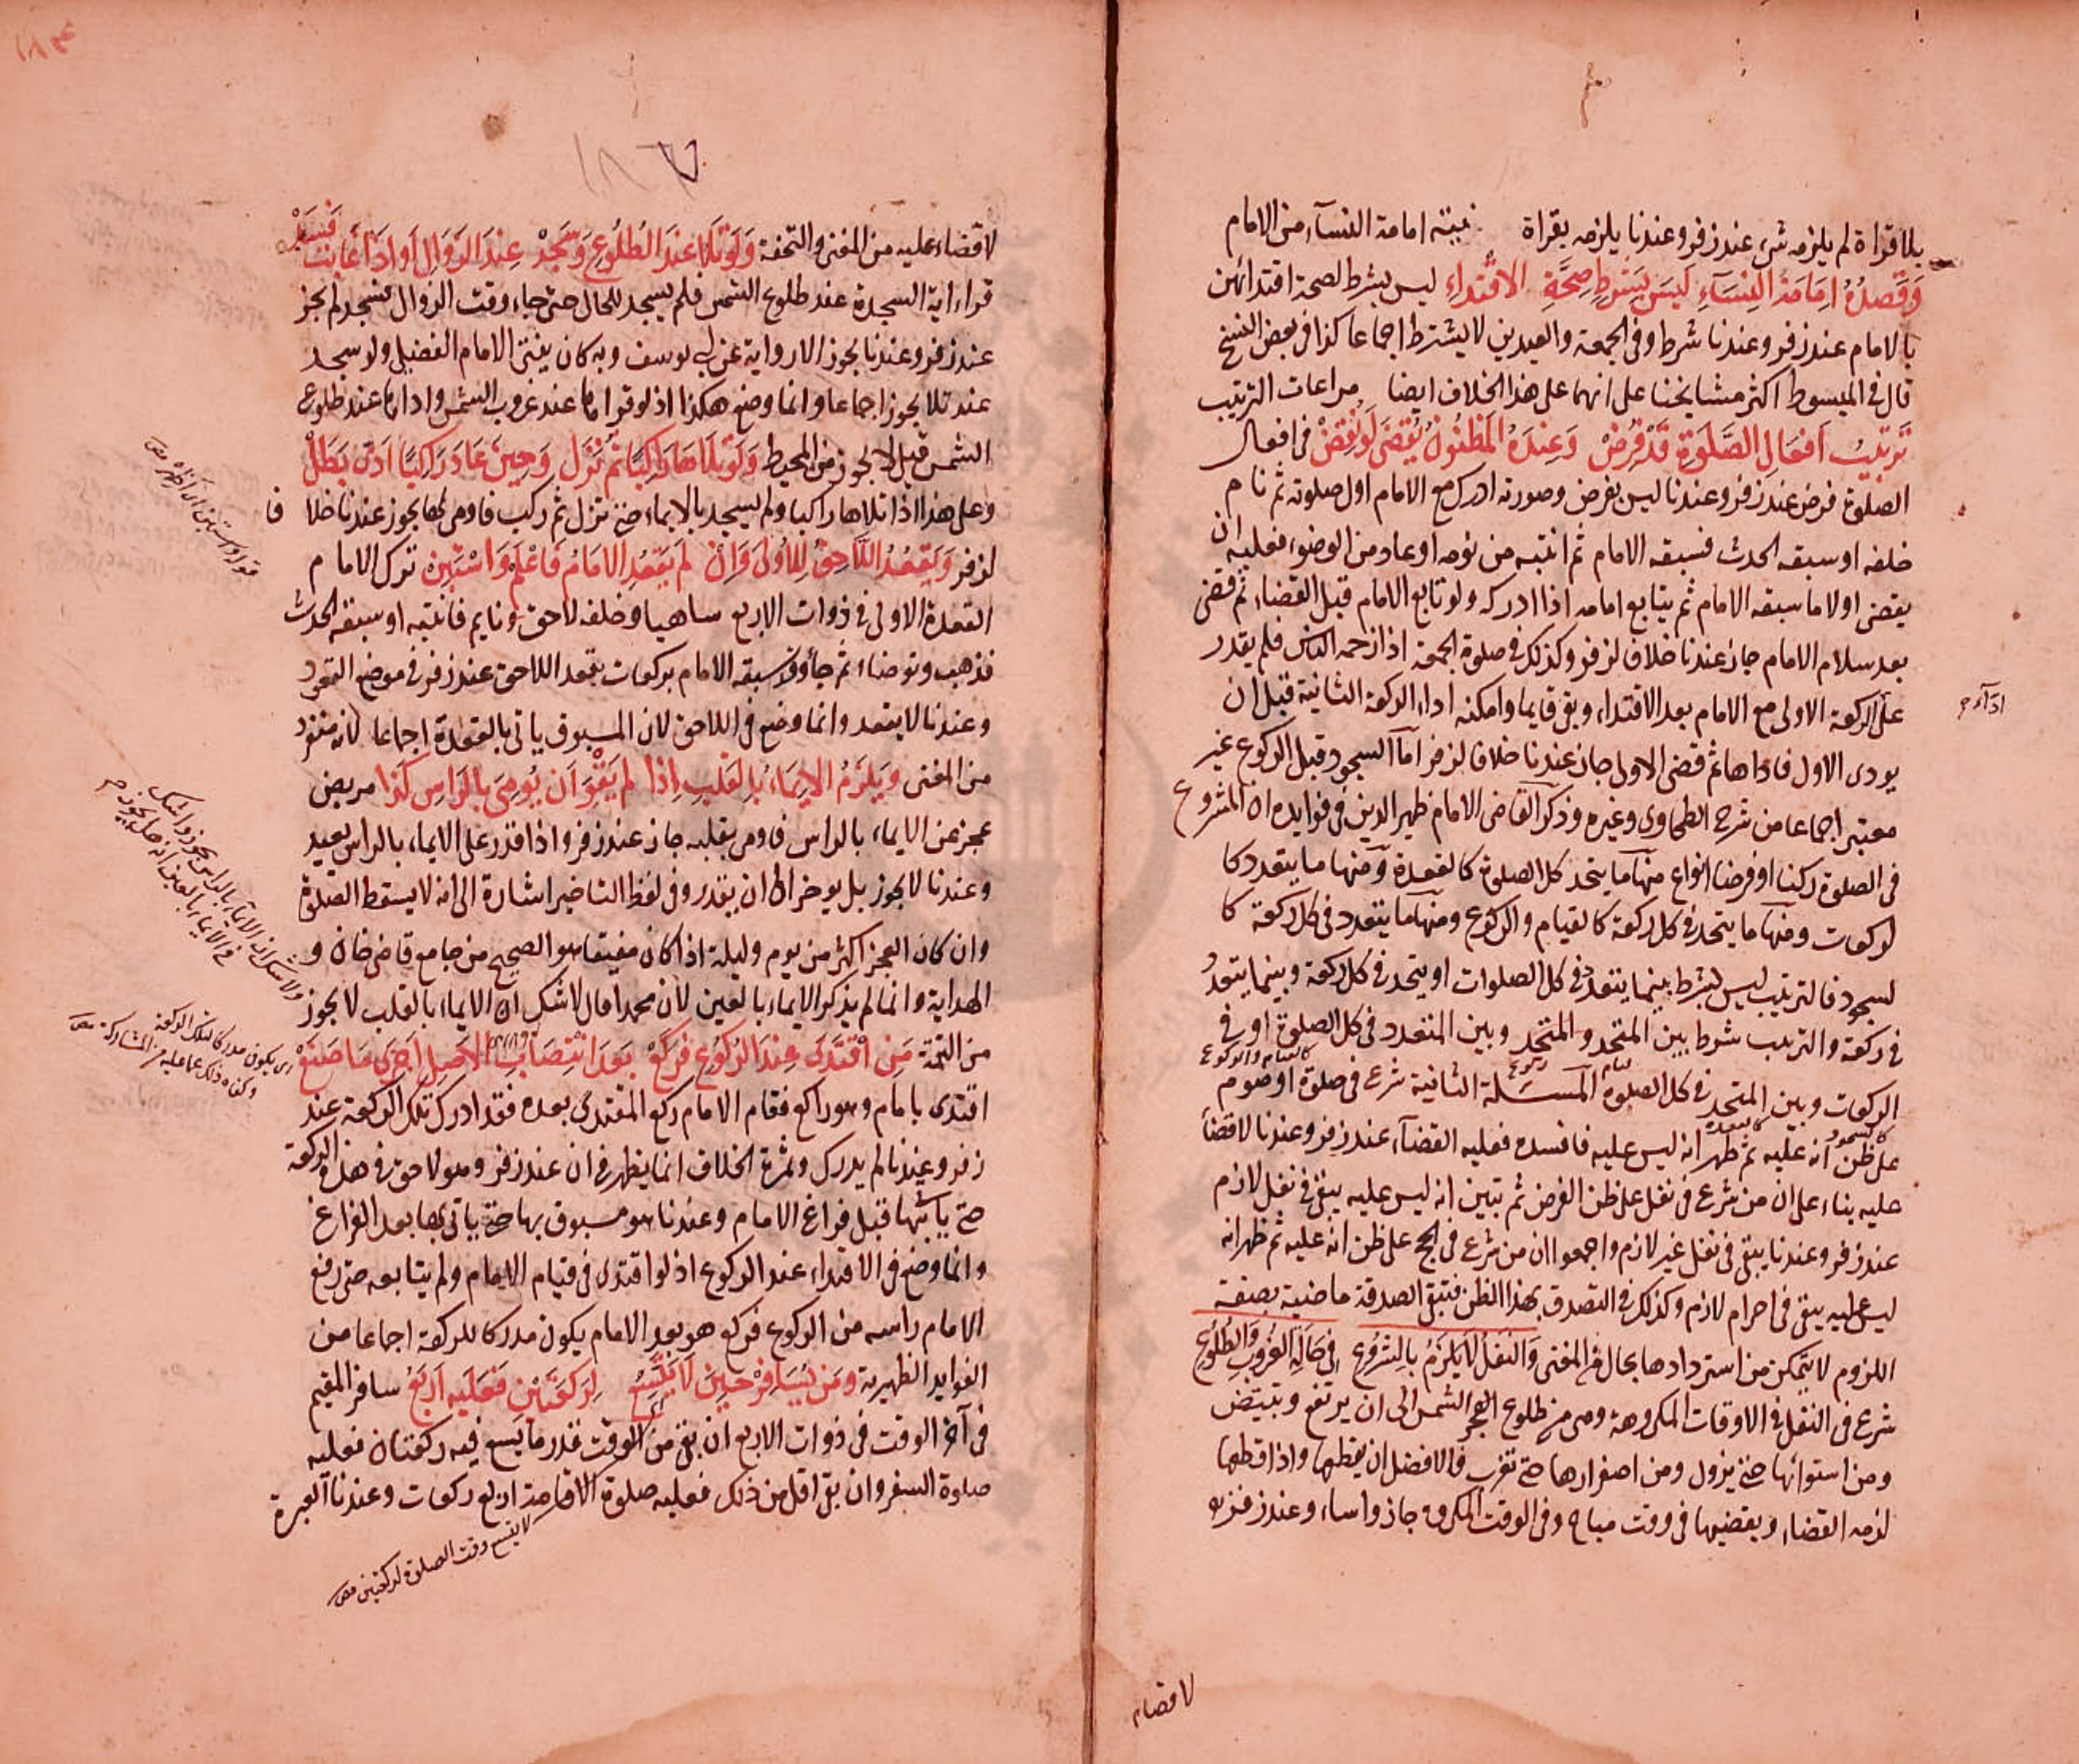 بلا قراءة لم يلزمه شيء عند زفر وعندنا يلزمه بقراة نيته امامة النسآء من الامام
وَقَصدُهُ اِمَامَةُ النِسَآءِ لَيسَ بِشَرطِ صِحَّةِ الاقْتِداءِ ليس بشرط لصحة اقتدائهن
بالامام عند زفر وعندنا شرط وفى الجمعة والعيدين لا يشترط اجماعا كذا فى بعض النسخ
قال فى المبسوط اكثر مشايخنا على انهما على هذا الخلاف ايضا مراعات الترتيب
تَرتيبُ اَفعَالِ الصَّلَوةِ قَدْ فُرِضْ وَعِندَهُ المَظنُونُ يُقضَى لَو نُقِضْ فى افعال
الصلوة فرض عند زفر وعندنا ليس بفرض وصورته ادرك مع الامام اول صلوته ثم نام
خلفه او سبقه الحدث فسبقه الامام ثم انتبه من نومه او عاد من الوضوء فعليه ان
يقضى اولا ما سبقه الامام ثم يتابع امامه اذا ادركه ولو تابع الامام قبل القضاء ثم قضى
بعد سلام الامام جاز عندنا خلافا لزفر وكذلك فى صلوة الجمعة اذا زحمه الناس فلم يقدر
على الركعة الاولى مع الامام بعد الاقتداء وبقى قايما وامكنه اداء الركعة الثانية قبل ان
يودى الاول فاداها ثم قضى الاولى جاز عندنا خلافا لزفر اما السجود قبل الركوع غير
معتبر اجماعا من شرح الطحاوى وغيره وذكر القاضى الامام ظهير الدين فى فوايده ان المشروع
فى الصلوة ركنا او فرضا انواع منها ما يتحد كل الصلوة كالقعدة ومنها ما يتعدد كا
لركعات ومنها ما يتحد فى كل ركعة كالقيام والركوع ومنها ما يتعدد فى كل ركعة كا
لسجود فالترتيب ليس بشرط بينما يتعدد فى كل الصلوات او يتحد فى كل ركعة وبينما يتعدد
فى ركعة والترتيب شرط بين المتحد والمتحد وبين المتعدد فى كل الصلوة او فى
الركعات وبين المتحد فى كل الصلوة المسئلة الثانية شرع فى صلوة او صوم
على ظن انه عليه ثم ظهر انه ليس عليه فافسده فعليه القضآء عند زفر وعندنا لا قضآ
عليه بناء على ان من شرع فى نفل على ظن الفرض ثم تبين انه ليس عليه يبقى فى نفل لازم
عند زفر وعندنا يبقى فى نفل غير لازم واجمعوا ان من شرع فى الحج على ظن انه عليه ثم ظهر انه
ليس عليه يبقى فى احرام لازم وكذلك فى التصدق بهذا الظن فتبقى الصدقة ماضية بصفة
اللزوم لا يتمكن من استردادها بحال من المغنى وَالنفلُ لَا يَلزَمُ بِالشروعِ فى حَالَةِ الغُروبِ وَالطُلُوعِ
شرع فى النفل فى الاوقات المكروهة وهى من طلوع الفجر الشمس الى ان يرتفع وتبيض
ومن استوائها حتى يزول ومن اصفرارها حتى تغرب فالافضل ان يقطعها واذا قطعها
لزمه القضاء ويقضيها فى وقت مباح وفى الوقت المكروه جاز واساء وعند زفر
لا قضاء
لا قضاء عليه من المغنى والتحفة وَلَو تَلَا عِندَ الطُلُوعِ وَسَجَدْ عِندَ الزَوَالِ اَو اِذَا غَابَت فَسَدْ
قراء اية السجدة عند طلوع الشمس فلم يسجد للحال حتى جاء وقت الزوال فسجد لم يجز
عند زفر وعندنا يجوز الا رواية عن ابى يوسف وبه كان يفتى الامام الفضيلى ولو سجد
عند تلا يجوز اجماعا وانما وضع هكذا اذ لو قراها عند غروب الشمس واداها عند طلوع
الشمس قبل لا يجوز من المحيط وَلَو تَلَاهَا رَاكِبًا ثُم نَزَل وَحِينَ عَادَ رَاكِبًا اَدَّى بَطَلْ
وعلى هذا اذا تلاها راكبا ولم يسجد بالايماء حتى نزل ثم ركب فاومى لها يجوز عندنا خلا فا
لزفر وَيَقعُدُ اللَّاحِقُ لِلاُولَى وَاِنْ لَم يَقعُدِ الاِمَامُ فَاعْلَمْ وَاسْتَبِنْ ترك الامام
القعدة الاولى فى ذوات الاربع ساهيا وخلفه لاحق ونايم فانتبه او سبقه الحدث
فذهب وتوضاء ثم جاء وقد سبقه الامام بركعات يقعد اللاحق عند زفر فى موضع القعود
وعندنا لا يقعد وانما وضع فى اللاحق لان المسبوق ياتى بالقعدة اجماعا لانه منفرد
من المغنى وَيَلزَمُ الاِيمَاءُ بِالقَلبِ اِذا لم يَقْوَ اَن يُومِىَ بِالرَاسِ كَذا مريض
عجز عن الايماء بالراس فاومى بقلبه جاز عند زفر واذا قدر على الايماء بالراس يعيد
وعندنا لا يجوز بل يوخر الى ان يقدر وفى لفظ التاخير اشارة الى انه لا يسقط الصلوة
وان كان العجز اكثر من يوم وليلة اذا كان مفيقا هو الصحيح من جامع قاضى خان و
الهداية وانما لم يذكر الايماء بالعين لان محمدا قال لا شك ان الايماء بالقلب لا يجوز
من التتمة مَنِ اقْتَدَى عِندَ الرُكُوعِ فَرَكَعْ بَعدَ انْتِصَابِ الاَصلِ اَجزَى مَا صَنَعْ
اقتدى بامام وهو راكع فقام الامام ركع المقتدى بعده فقد ادرك تلك الركعة عند
زفر وعندنا لم يدرك وثمرة الخلاف انما يظهر فى ان عند زفر وهو لاحق فى هذه الركعة
حتى ياتيها قبل فراغ الامام وعندنا هو مسبوق بها حتى ياتى بها بعد الفراغ
وانما وضع فى الاقتداء عند الركوع اذ لو اقتدى فى قيام الامام ولم يتابعه حتى رفع
الامام راسه من الركوع فركع هو بعد الامام يكون مدركا للركعة اجماعا من
الفوايد الظهيرية وَمَن يُسَافِرْ حِينَ لَا يَتَّسِعُ لِرَكعَتَيْنِ فَعَلَيهِ اَربَعُ سافر المقيم
فى آخر الوقت فى ذوات الاربع ان بقى من الوقت قدر ما يسع فيه ركعتان فعليه
صلوة السفر وان بقى اقل من ذلك فعليه صلوة الاقامة اربع ركعات وعندنا العبرة
لا يتسع وقت الصلوة لركعتين